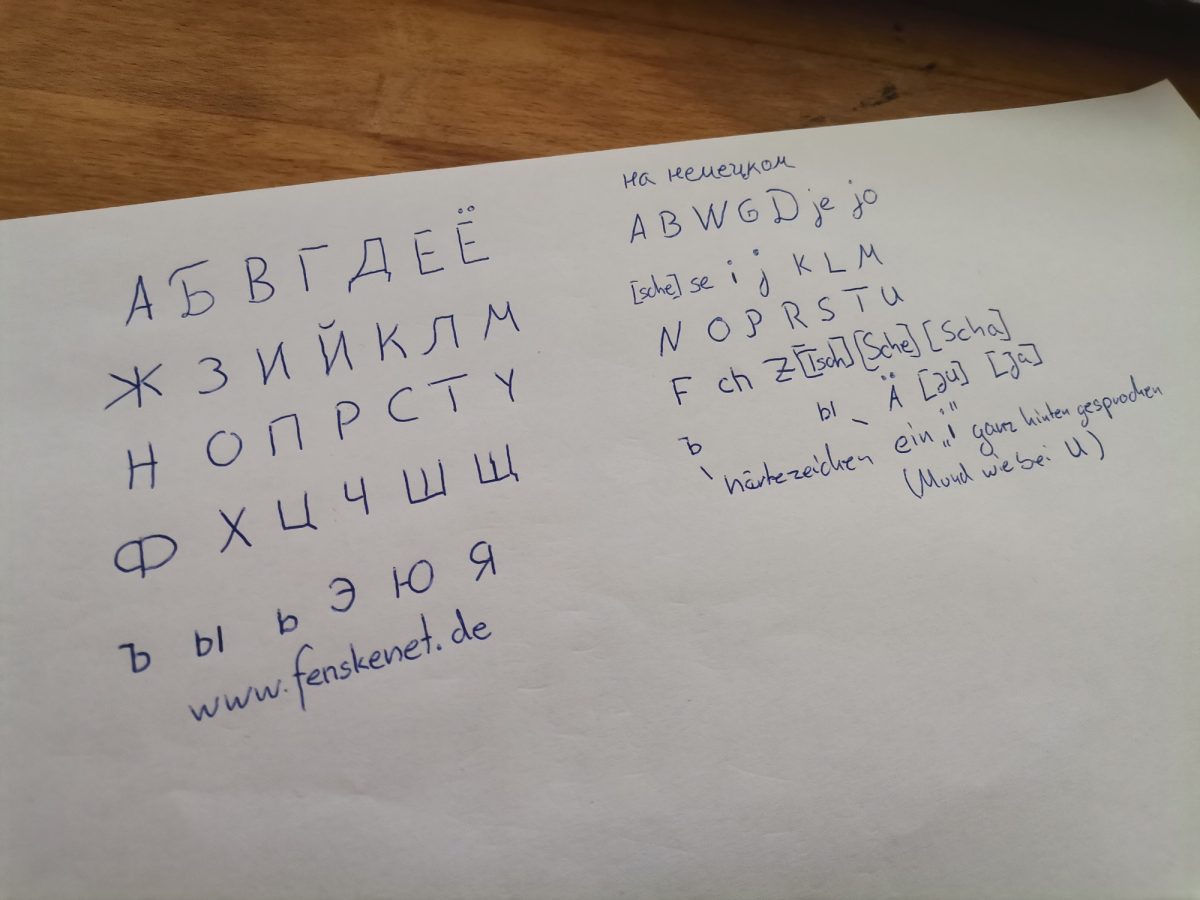 А Б В Г Д Е Ё
Ж З И Й К Л М
Н О П Р С Т У
Ф Х Ц Ч Ш Щ
Ъ Ы Ь Э Ю Я
www.fenskenet.de
на немецком
A B W G D je jo
[sche] se i j K L M
N O P R S T U
F ch Z [Tsch] [Sche] [Scha]
ъ ы Ä [ju] [ja]
härtezeichen ein „i" ganz hinten gesprochen
(Mund wie bei U)